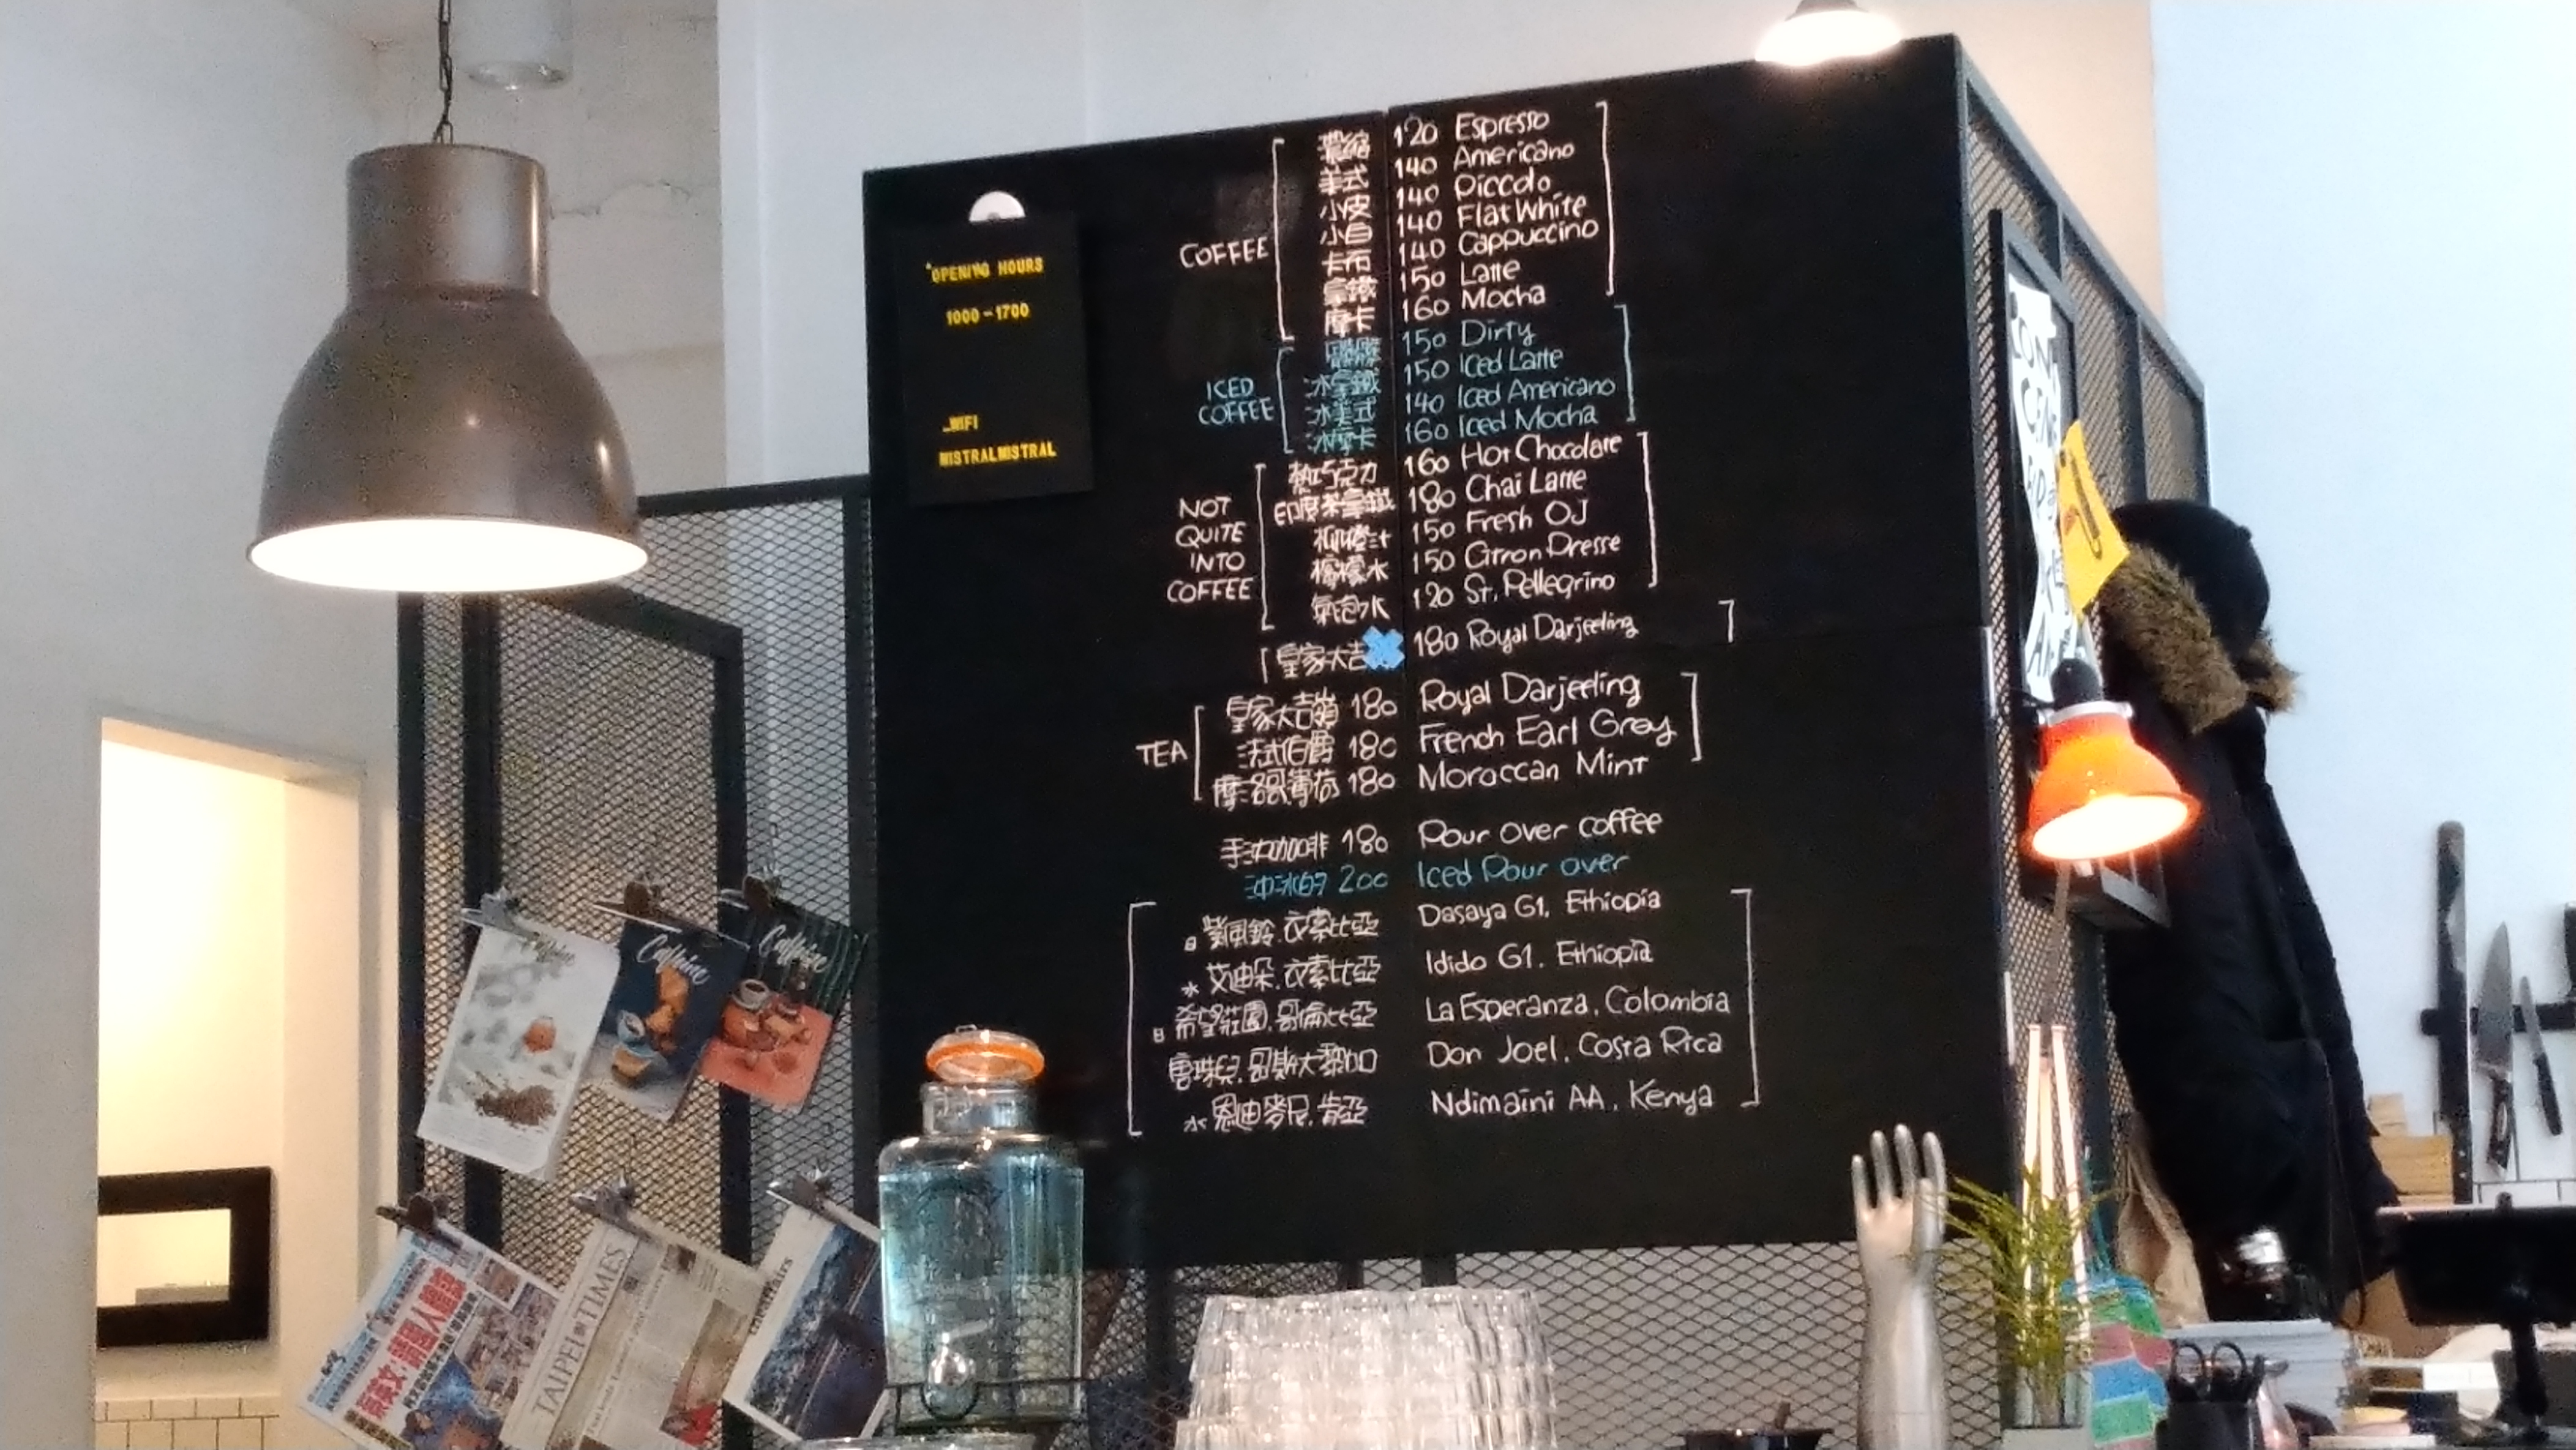 "OPENING HOURS
1000-1700
_WIFI
MISTRALMISTRAL
COFFEE
濃縮 120 Espresso
美式 140 Americano
小皮 140 Piccolo
小白 140 Flat White
卡布 140 Cappuccino
拿鐵 150 Latte
摩卡 160 Mocha
ICED
COFFEE
150 Dirty
冰拿鐵 150 Iced Latte
冰美式 140 Iced Americano
冰摩卡 160 Iced Mocha
NOT
QUITE
INTO
COFFEE
熱巧克力 160 Hot Chocolate
印度茶拿鐵 180 Chai Latte
柳橙汁 150 Fresh OJ
檸檬水 150 Citron Presse
氣泡水 120 St. Pellegrino
皇家大吉 180 Royal Darjeeling
TEA
皇家大吉嶺 180 Royal Darjeeling
法式伯爵 180 French Earl Grey
摩洛哥薄荷 180 Moroccan Mint
手沖咖啡 180 Pour over coffee
沖冰的 200 Iced Pour over
日 紫風鈴.衣索比亞 Dasaya G1, Ethiopia
水 艾迪朵.衣索比亞 Idido G1. Ethiopia
日 希望莊園.哥倫比亞 La Esperanza, Colombia
唐珠兒.哥斯大黎加 Don Joel, Costa Rica
水 恩迪麥尼.肯亞 Ndimaini AA, Kenya
Caffeine
Caffeine
TAIPEI TIMES